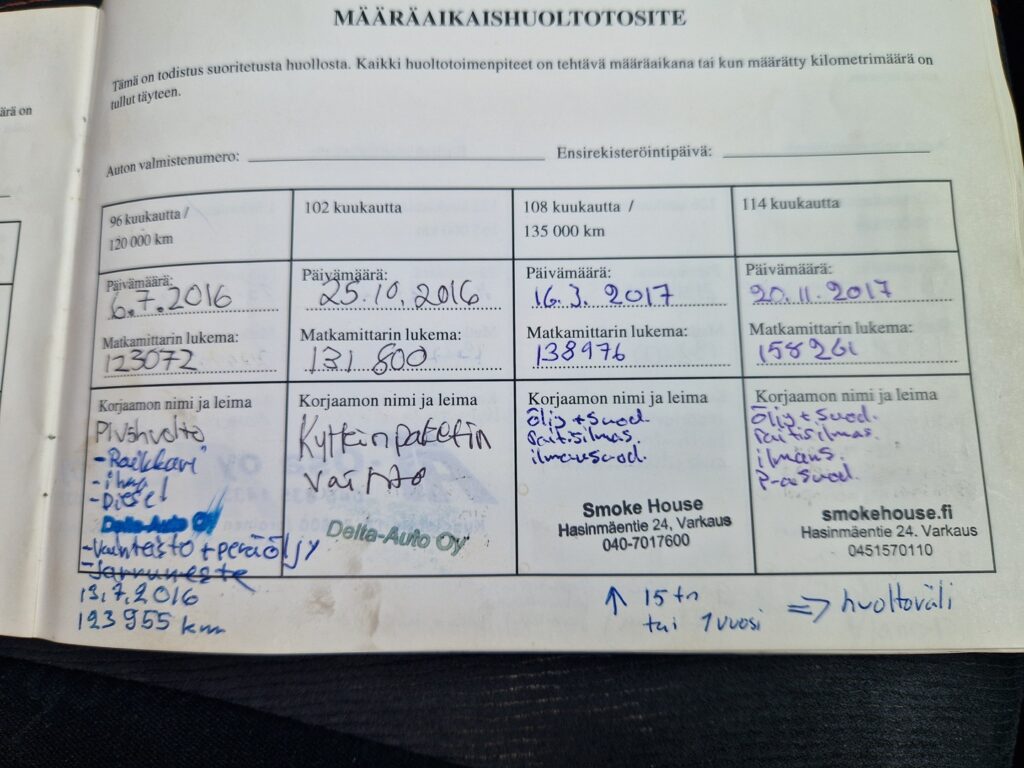 ärä on
MÄÄRÄAIKAISHUOLTOTOSITE
Tämä on todistus suoritetusta huollosta. Kaikki huoltotoimenpiteet on tehtävä määräaikana tai kun määrätty kilometrimäärä on
tullut täyteen.
Auton valmistenumero:
Ensirekisteröintipäivä:
96 kuukautta /
120 000 km
Päivämäärä:
6.7.2016
Matkamittarin lukema:
123072
Korjaamon nimi ja leima
- Raikkari
- Diesel
Delta-Auto Oy
- Vaihteisto + peräöljy
- Jarruneste
13.7.2016
123 955 km
102 kuukautta
Päivämäärä:
25.10.2016
Matkamittarin lukema:
131 800
Korjaamon nimi ja leima
Kytkinpaketin
vaihto
Delta-Auto Oy
108 kuukautta /
135 000 km
Päivämäärä:
16.3. 2017
Matkamittarin lukema:
138976
Korjaamon nimi ja leima
Öljy + suod.
raitisilmas.
ilmansuod.
Smoke House
Hasinmäentie 24, Varkaus
040-7017600
114 kuukautta
Päivämäärä:
20.11.2017
Matkamittarin lukema:
158261
Korjaamon nimi ja leima
Öljy + suod.
raitisilmas.
ilmans.
p-a suod.
smokehouse.fi
Hasinmäentie 24. Varkaus
0451570110
↑ 15 tn
tai 1 vuosi
=> huoltoväli